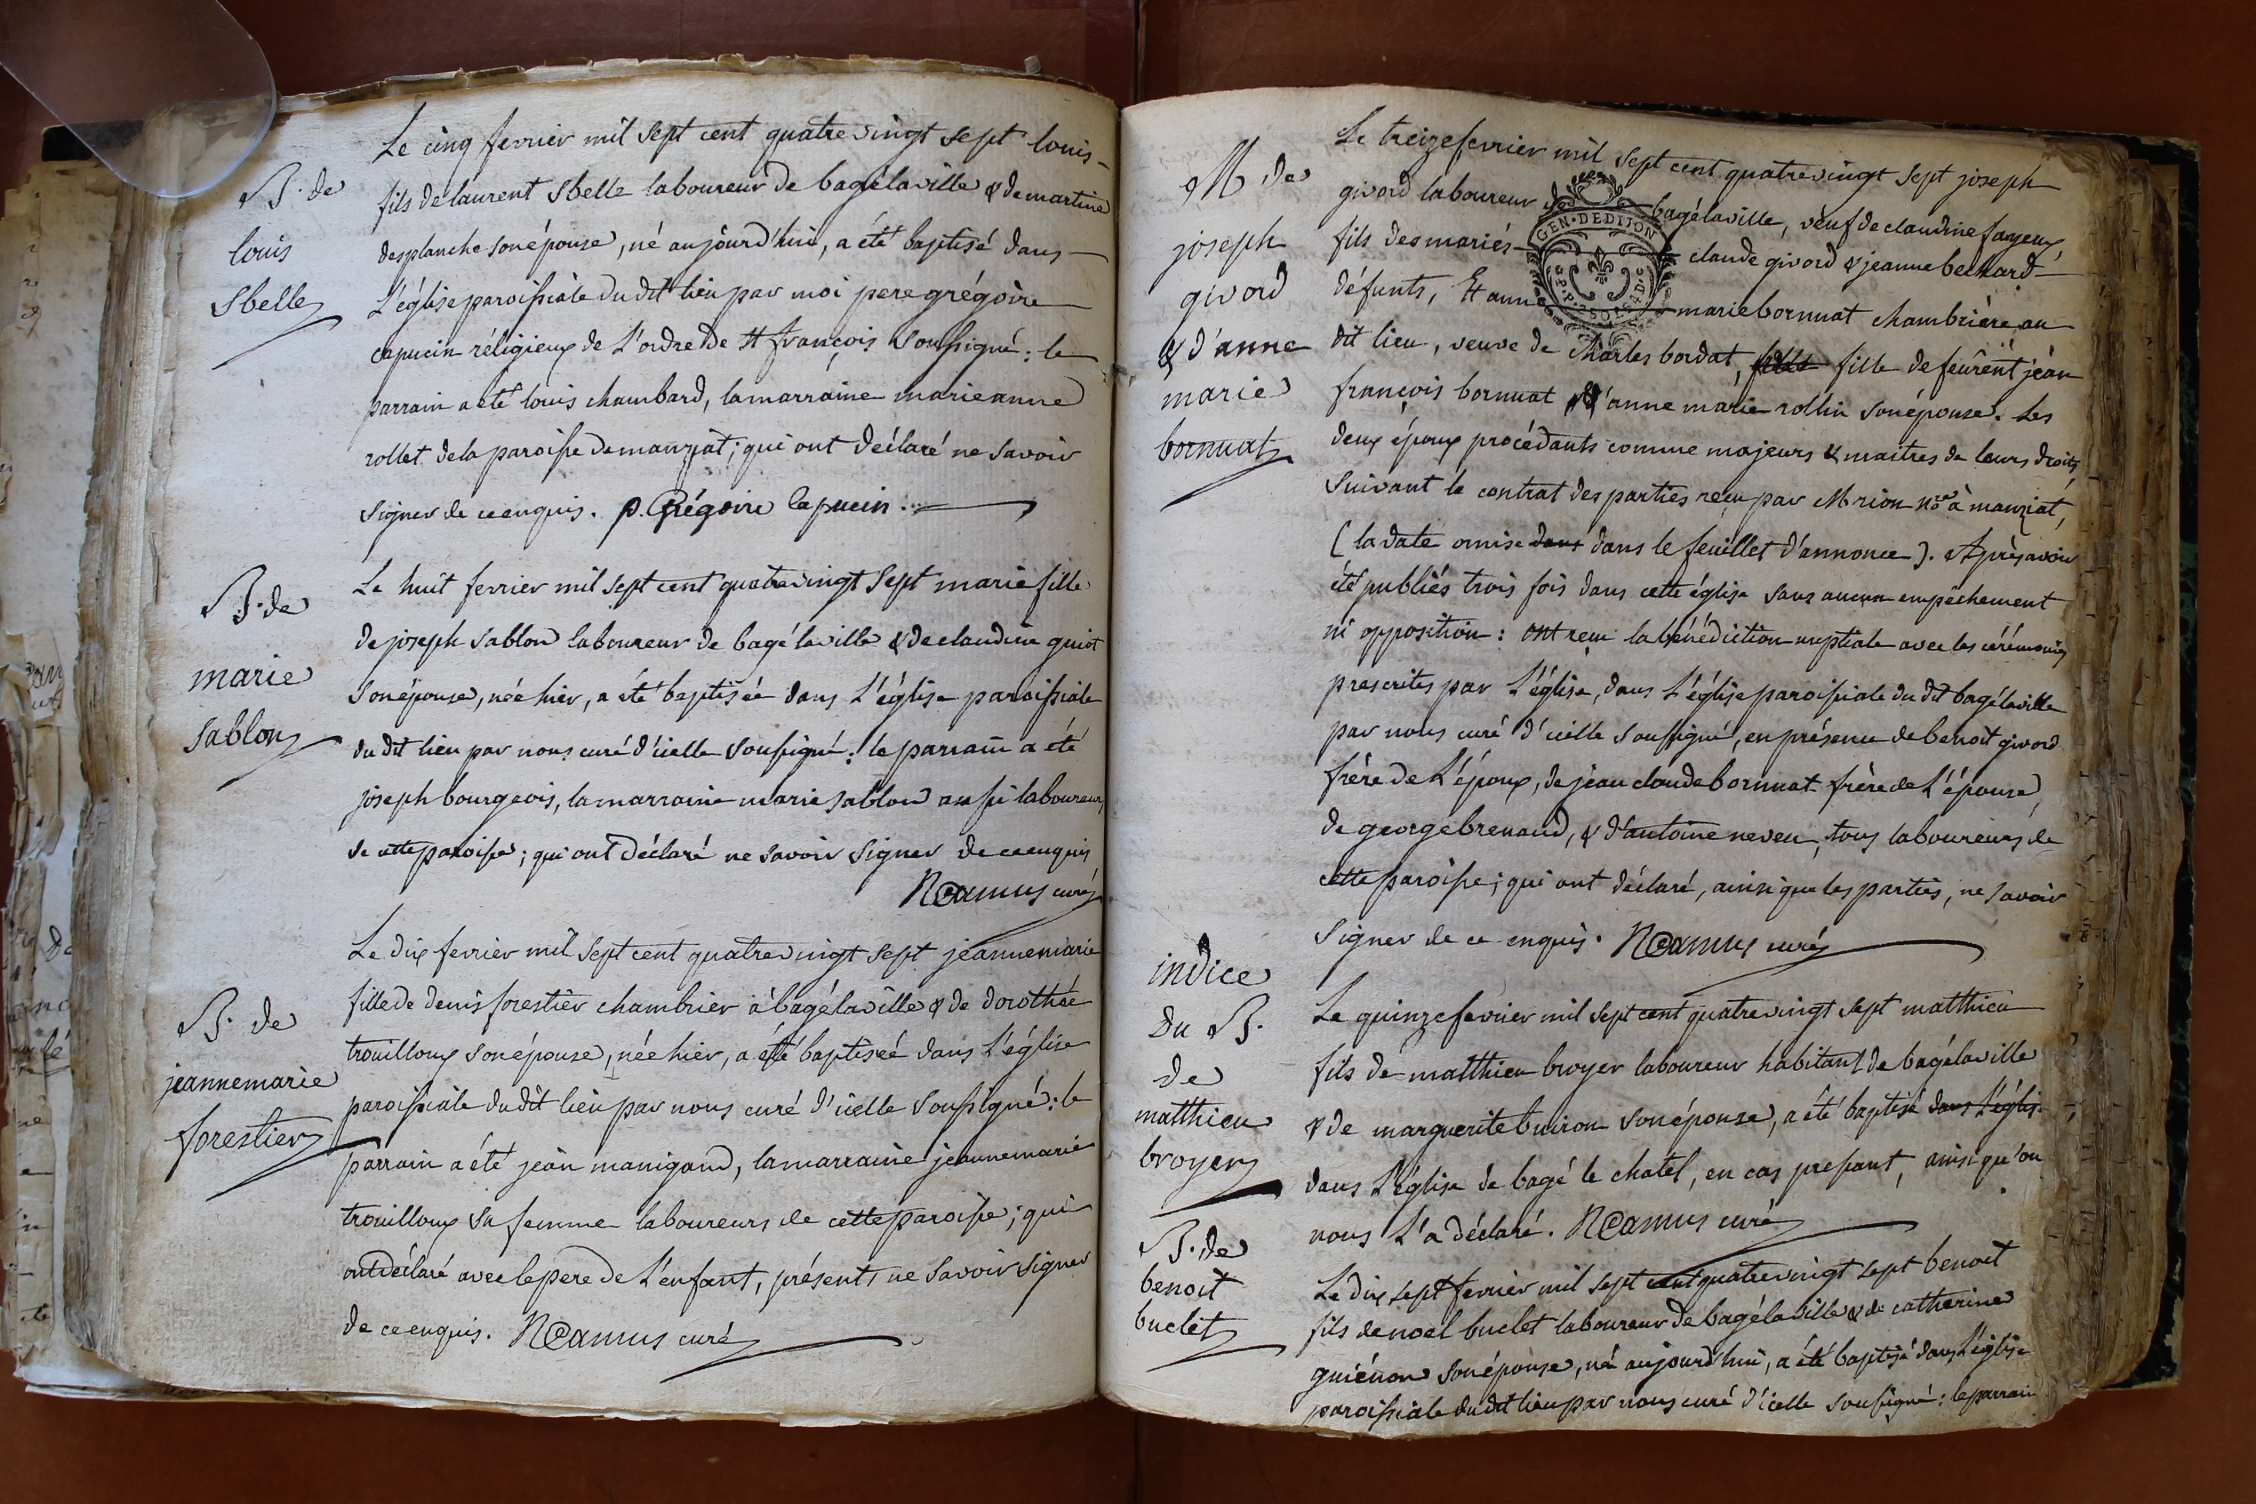 B. de
louis
Sbelle
Le cinq fevrier mil sept cent quatre vingt sept louis
fils de laurent Sbelle laboureur de bagélaville & de martine
desplanche son épouse, né aujourd'hui, a été baptisé dans
L'église paroissiale du dit lieu par moi pere grégoire
capucin réligieux de L'ordre de St françois soussigné : le
parrain a été louis chambard, la marraine marieanne
rollet de la paroisse de manziat ; qui ont déclaré ne savoir
signer de ce enquis. p. Grégoire Capucin
B. de
marie
sablon
Le huit fevrier mil sept cent quatre vingt sept marie fille
de joseph sablon laboureur de bagélaville & de claudine guiot
son épouse, née hier, a été baptisée dans L'église paroissiale
du dit lieu par nous curé d'icelle soussigné : le parrain a été
joseph bourgeois, la marraine marie sablon aussi laboureurs
de cette paroisse ; qui ont déclaré ne savoir signer de ce enquis
NCamus curé
B. de
jeannemarie
forestier
Le dix fevrier mil sept cent quatre vingt sept jeannemarie
fille de denis forestier chambrier à bagélaville & de dorothée
trouilloux son épouse, née hier, a été baptisée dans L'église
paroissiale du dit lieu par nous curé d'icelle soussigné : le
parrain a été jean manigand, la marraine jeannemarie
trouilloux sa femme laboureurs de cette paroisse ; qui
ont déclaré avec le pere de L'enfant, présent, ne savoir signer
de ce enquis. NCamus curé
M. de
joseph
givord
& d'anne
marie
bornuat
GEN. DE DIJON
Le treize fevrier mil sept cent quatre vingt sept joseph
givord laboureur de bagélaville, veuf de claudine fayeux
fils des mariés claude givord & jeanne bechard
défunts, Et anne marie bornuat chambrière au
dit lieu, veuve de charles bordat, fille de feu rent jean
françois bornuat & d'anne marie rollin son épouse. Les
deux époux procédants comme majeurs & maitres de leurs droits,
suivant le contrat des parties reçu par M rion nre à manziat,
(la date omise dans dans le feuillet d'annonce). Après avoir
été publiés trois fois dans cette église sans aucun empêchement
ni opposition : ont reçu la bénédiction nuptiale avec les cérémonies
prescrites par L'église, dans L'église paroissiale du dit bagélaville
par nous curé d'icelle soussigné, en présence de benoit givord
frère de L'époux, de jean claude bornuat frère de L'épouse,
de george brenaud, & d'antoine neveu, tous laboureurs de
cette paroisse ; qui ont déclaré, ainsi que les parties, ne savoir
signer de ce enquis. NCamus curé
indice
du B.
de
matthieu
broyer
Le quinze fevrier mil sept cent quatre vingt sept matthieu
fils de matthieu broyer laboureur habitant de bagélaville
& de marguerite buiron son épouse, a été baptisé dans L'église
dans L'église de bagé le chatel, en cas pressant, ainsi qu'on
nous L'a déclaré. NCamus curé
B. de
benoit
buclet
Le dix sept fevrier mil sept cent quatre vingt sept benoit
fils de noël buclet laboureur de bagélaville & de catherine
guiénon son épouse, né aujourd'hui, a été baptisé dans L'église
paroissiale du dit lieu par nous curé d'icelle soussigné : le parrain